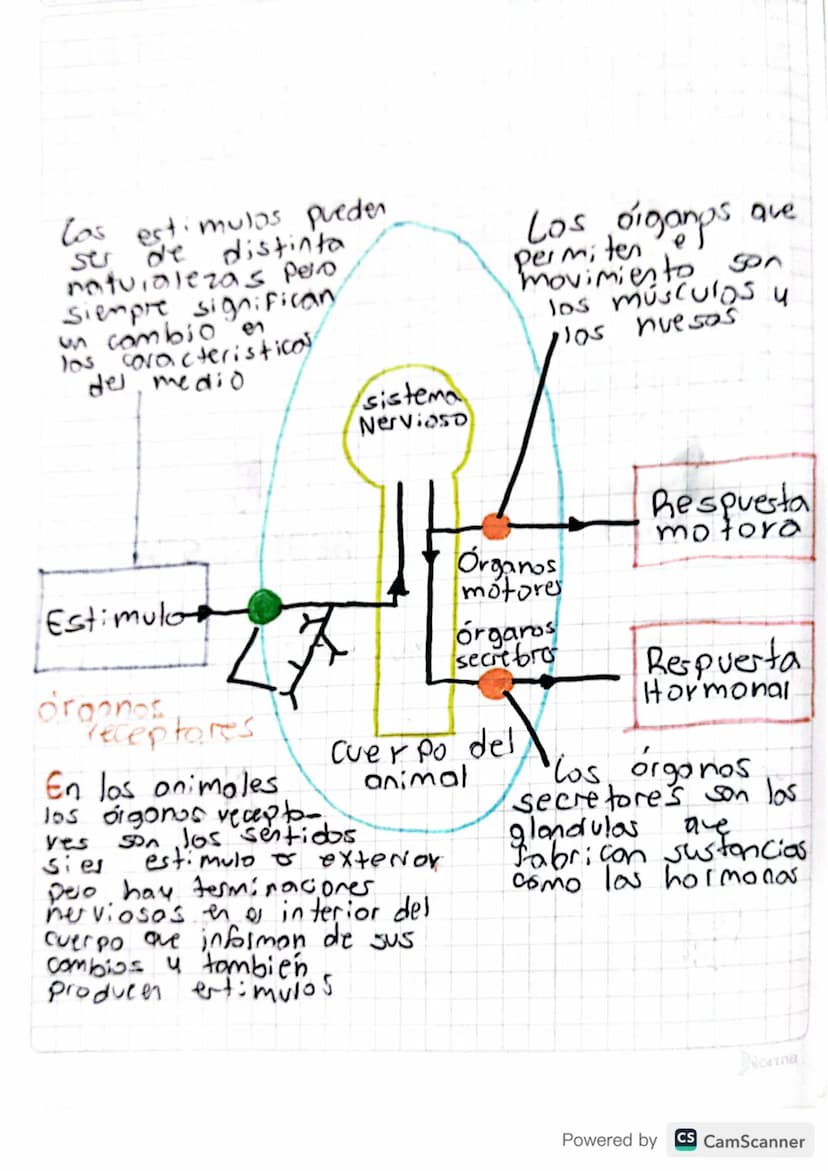 Los estimulos pueden
ser de distinta
naturalezas pero
siempre significan
un cambio en
las caracteristicas
del medio
Los órganos que
permiten el
movimiento son
los músculos y
los huesos
sistema
Nervioso
Respuesta
motora
Órganos
motores
Estimulo
órganos
secretoro
Respuesta
Hormonal
órganos
receptores
Cuerpo del
animal
En los animales
los órganos recepto-
res son los sentidos
si el estimulo es exterior
pero hay terminaciones
nerviosos en el interior del
cuerpo que informan de sus
cambios y también
producen estimulos
Los órganos
secretores son los
glandulas que
fabrican sustancias
como las hormonas
Norma
Powered by CS CamScanner